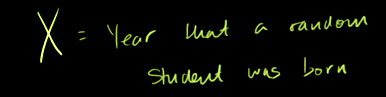 X = Year that a random
student was born